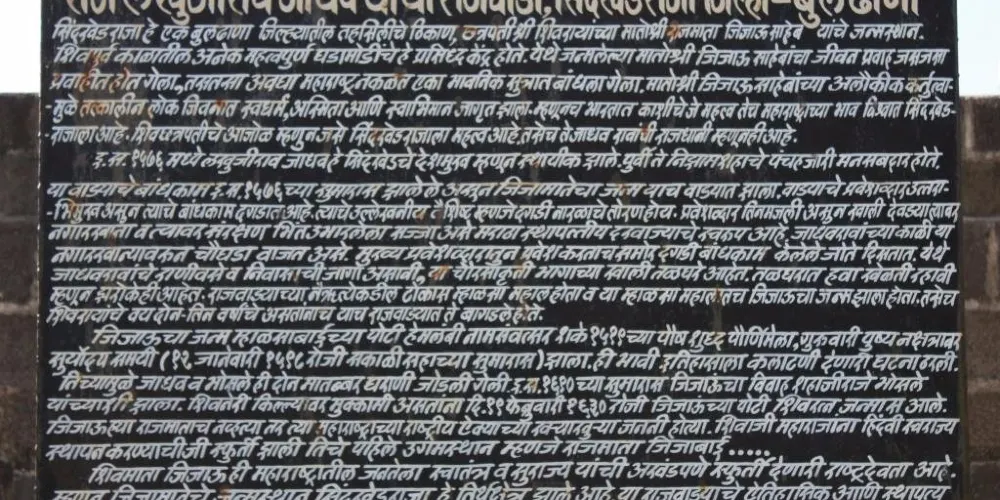 राजे लखुजीराव जाधव यांचा राजवाडा, सिंदखेडराजा जिल्हा - बुलढाणा
सिंदखेडराजा हे एक बुलढाणा जिल्ह्यातील तहसिलीचे ठिकाण छत्रपती श्री शिवरायांच्या मातोश्री राजमाता जिजाऊ साहेब यांचे जन्मस्थान.
शिवपूर्व काळातील अनेक महत्वपूर्ण घडामोडींचे हे प्रसिध्द केंद्र होते. येथे जन्मलेल्या मातोश्री जिजाऊ साहेबांचा जीवन प्रवाह जसजसा
प्रवाहीत होत गेला, तसतसा अवघा महाराष्ट्र नकळत एका भावनिक सुत्रात बांधला गेला. मातोश्री जिजाऊ साहेबांच्या अलौकीक कर्तृत्वा-
-मुळे तत्कालीन लोक जिवनात स्वधर्म, अस्मिता आणि स्वाभिमान जागृत झाला. म्हणूनच भारतात काशीचे जे महत्व तेच महाराष्ट्राच्या भाव विश्वात सिंदखेड-
-राजाला आहे. शिवछत्रपतीचे आजोळ म्हणून जसे सिंदखेडराजाला महत्व आहे तसेच ते जाधव रावांची राजधानी म्हणूनही आहे.
इ.स. १५७६ मध्ये लखुजीराव जाधव हे सिंदखेडचे देशमुख म्हणून स्थायीक झाले. पुर्वी ते निझामशहाचे पंचहजारी मनसबदार होते.
या वाड्याचे बांधकाम इ.स. १५७६ च्या सुमारास झालेले असून जिजामातेचा जन्म याच वाड्यात झाला. वाड्याचे प्रवेशव्दार उत्तरा-
-भिमुख असून त्याचे बांधकाम दगडात आहे. त्याचे उल्लेखनीय वैशिष्ट म्हणजे दगडी नारळाचे तोरण होय. प्रवेशव्दार तिनमजली असून खाली देवड्या त्यावर
नगारखाना व त्यावर संरक्षण भिंत उभारलेला सज्जा असे मराठा स्थापत्तीय दरवाज्याचे स्वरूप आहे. जाधवरावांच्या काळी या
नगारखान्यावरून चौघडा वाजत असे. मुख्य प्रवेशव्दारातुन प्रवेश करताच समोर दगडी बांधकाम केलेले जोते दिसतात. येथे
जाधवरावांचे राणीवसे व निवासाची जागा असावी. या चौरसाकृती भागाच्या खाली तळघरे आहेत. तळघरात हवा खेळती रहावी
म्हणून झरोकेही आहेत. राजवाड्याच्या नैऋत्येकडील टोकास म्हाळसा महाल होता व या म्हाळसा महालातच जिजाऊचा जन्म झाला होता. तसेच
शिवरायांचे वय दोन-तिन वर्षाचे असतांनाच याच राजवाड्यात ते बागडले होते.
जिजाऊचा जन्म म्हाळसाबाईच्या पोटी हेमलंबी नामसंवत्सर शके १५१९ च्या पौष शुध्द पौर्णिमेला, गुरुवारी पुष्य नक्षत्रावर
सुर्योदय समयी (१२ जानेवारी १५९८ रोजी सकाळी सहाच्या सुमारास) झाला. ही भावी इतिहासाला कलाटणी देणारी घटना ठरली.
तिच्यामुळे जाधव व भोसले ही दोन मातब्बर घराणी जोडली गेली. इ.स. १६१० च्या सुमारास जिजाऊचा विवाह शहाजीराजे भोसले
यांच्याशी झाला. शिवनेरी किल्ल्यावर मुक्कामी असतांना दि. १९ फेब्रुवारी १६३० रोजी जिजाऊच्या पोटी शिवरत्न जन्मास आले.
जिजाऊ ह्या राजमाताच नव्हत्या तर त्या महाराष्ट्राच्या राष्ट्रीय ऐक्याच्या खऱ्याखुऱ्या जननी होत्या. शिवाजी महाराजांना हिंदवी स्वराज्य
स्थापन करण्याची जी स्फुर्ती झाली तिचे पहिले उगमस्थान म्हणजे राजमाता जिजाबाई .....
शिवमाता जिजाऊ ही महाराष्ट्रातील जनतेला स्वातंत्र व सुराज्य यांची अखंडपणे स्फुर्ती देणारी राष्ट्रदेवता आहे.
म्हणून जिजामातेचे जन्मस्थान सिंदखेडराजा हे तिर्थक्षेत्र झाले आहे या राजवाड्याचे ऐतिहासिक आणि स्थापत्य